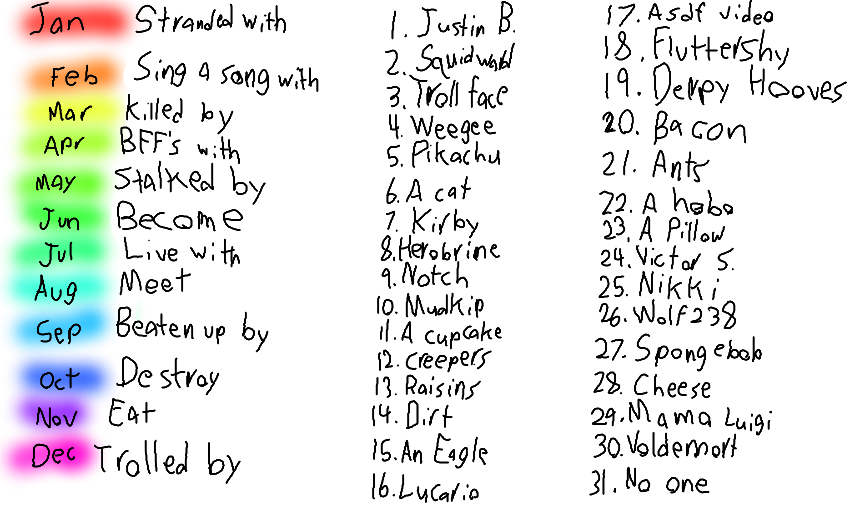 Jan Stranded with
Feb Sing a song with
Mar Killed by
Apr BFF's with
May Stalked by
Jun Become
Jul Live with
Aug Meet
Sep Beaten up by
Oct Destroy
Nov Eat
Dec Trolled by
1. Justin B.
2. Squidward
3. Troll face
4. Weegee
5. Pikachu
6. A cat
7. Kirby
8. Herobrine
9. Notch
10. Mudkip
11. A cupcake
12. Creepers
13. Raisins
14. Dirt
15. An Eagle
16. Lucario
17. Asdf video
18. Fluttershy
19. Derpy Hooves
20. Bacon
21. Ants
22. A hobo
23. A Pillow
24. Victor S.
25. Nikki
26. Wolf238
27. Spongebob
28. Cheese
29. Mama Luigi
30. Voldemort
31. No one